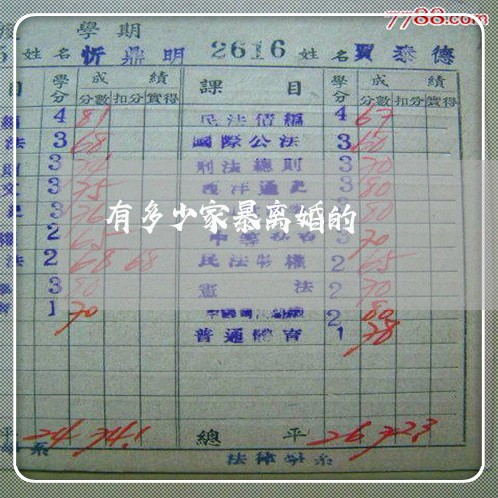 7788.com
學期
姓名 忻鼎明 2616 姓名 賈泰德
目 學分 成績 課目 學分 成績
分數 扣分 實得 分數 扣分 實得
4 81 民法債編 4 67
法 3 68 國際公法 3 60
則 3 刑法總則 3 70
3 75 西洋通史 3 80
3 80
有多少家暴离婚的
2 65 3 70
法 2 68 68 民法物權 2 65
3 80 憲法 2 70
育 1 70 2 80
普通體育 1 78
平 24 74.1 總平 26 72.3
系 法律學系